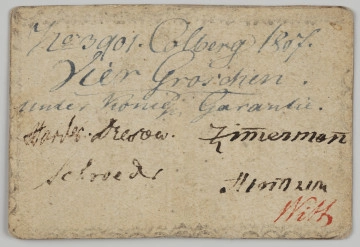 No 3901. Colberg 1807.
Vier Groschen.
unter Königl. Garantie.
Dresow. Zimmerman
Schroeder